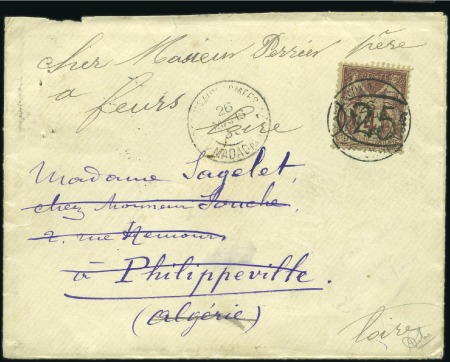 chez Monsieur Perrin père
a feurs Loire
26
MADAG
25
Madame Sagelet,
chez Monsieur Touche
2, rue Nemours
à Philippeville.
(Algérie)
Loire